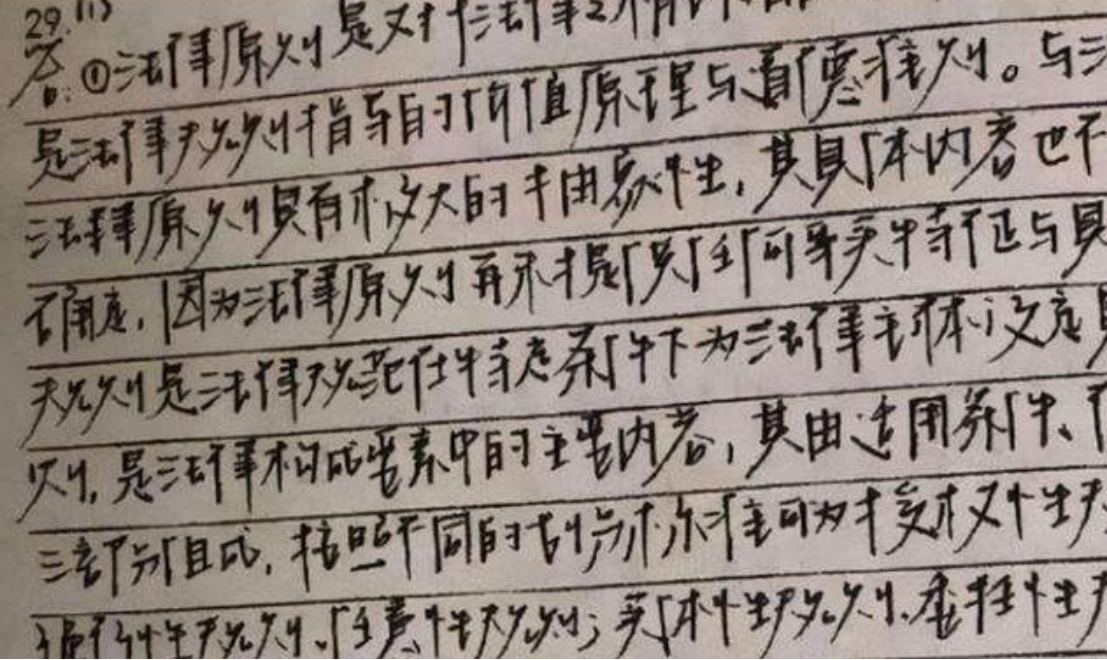 29.(1)
答:①法律原则是对法律
是法律规则背与的价值原理与道德准则。与法
法律原则具有极大的抽象性,其具体内容也不
确定,因为法律原则再未提供任何事实特征与具
规则是法律规范在特定条件下为法律主体设定
则,是法律构成要素中的主要内容,其由适用条件、
三部分组成,按照不同的划分标准可为授权性规
强制性规则、任意性规则;实体性规则、委任性规